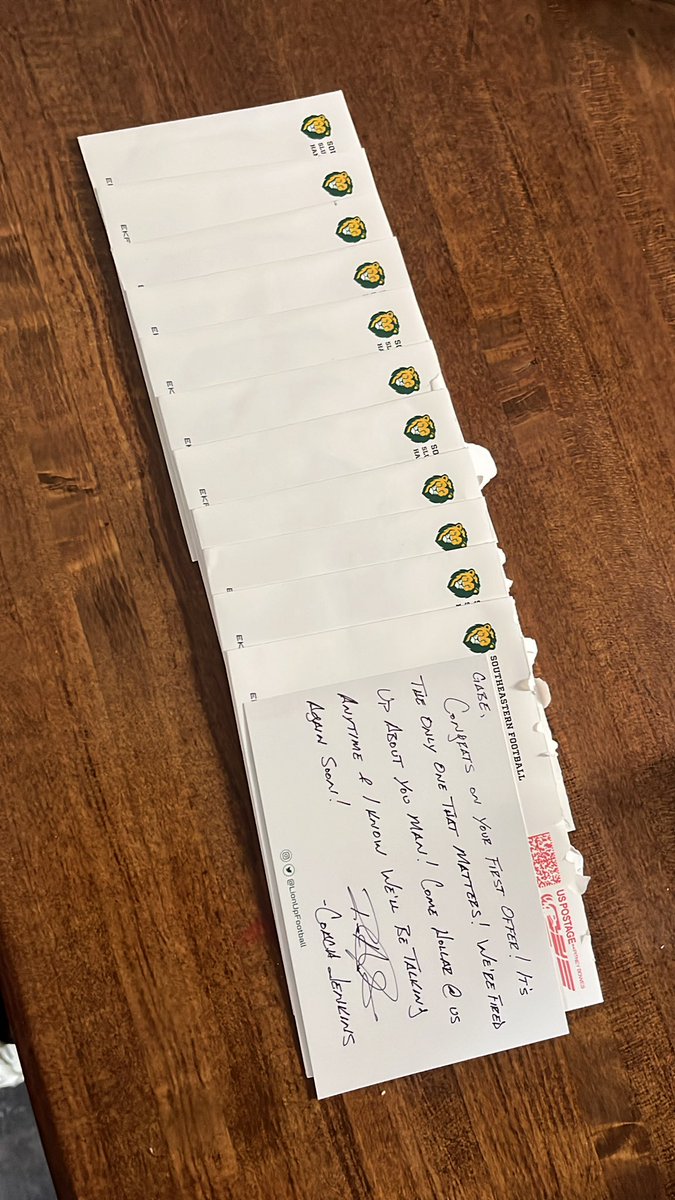 SOUTHEASTERN FOOTBALL
GABE,
CONGRATS ON YOUR FIRST OFFER! IT'S
THE ONLY ONE THAT MATTERS! WE'RE FIRED
UP ABOUT YOU MAN! COME HOLLAR @ US
ANYTIME & I KNOW WE'LL BE TALKING
AGAIN SOON!
-COACH JENKINS
@LionUpFootball
US POSTAGE
PITNEY BOWES